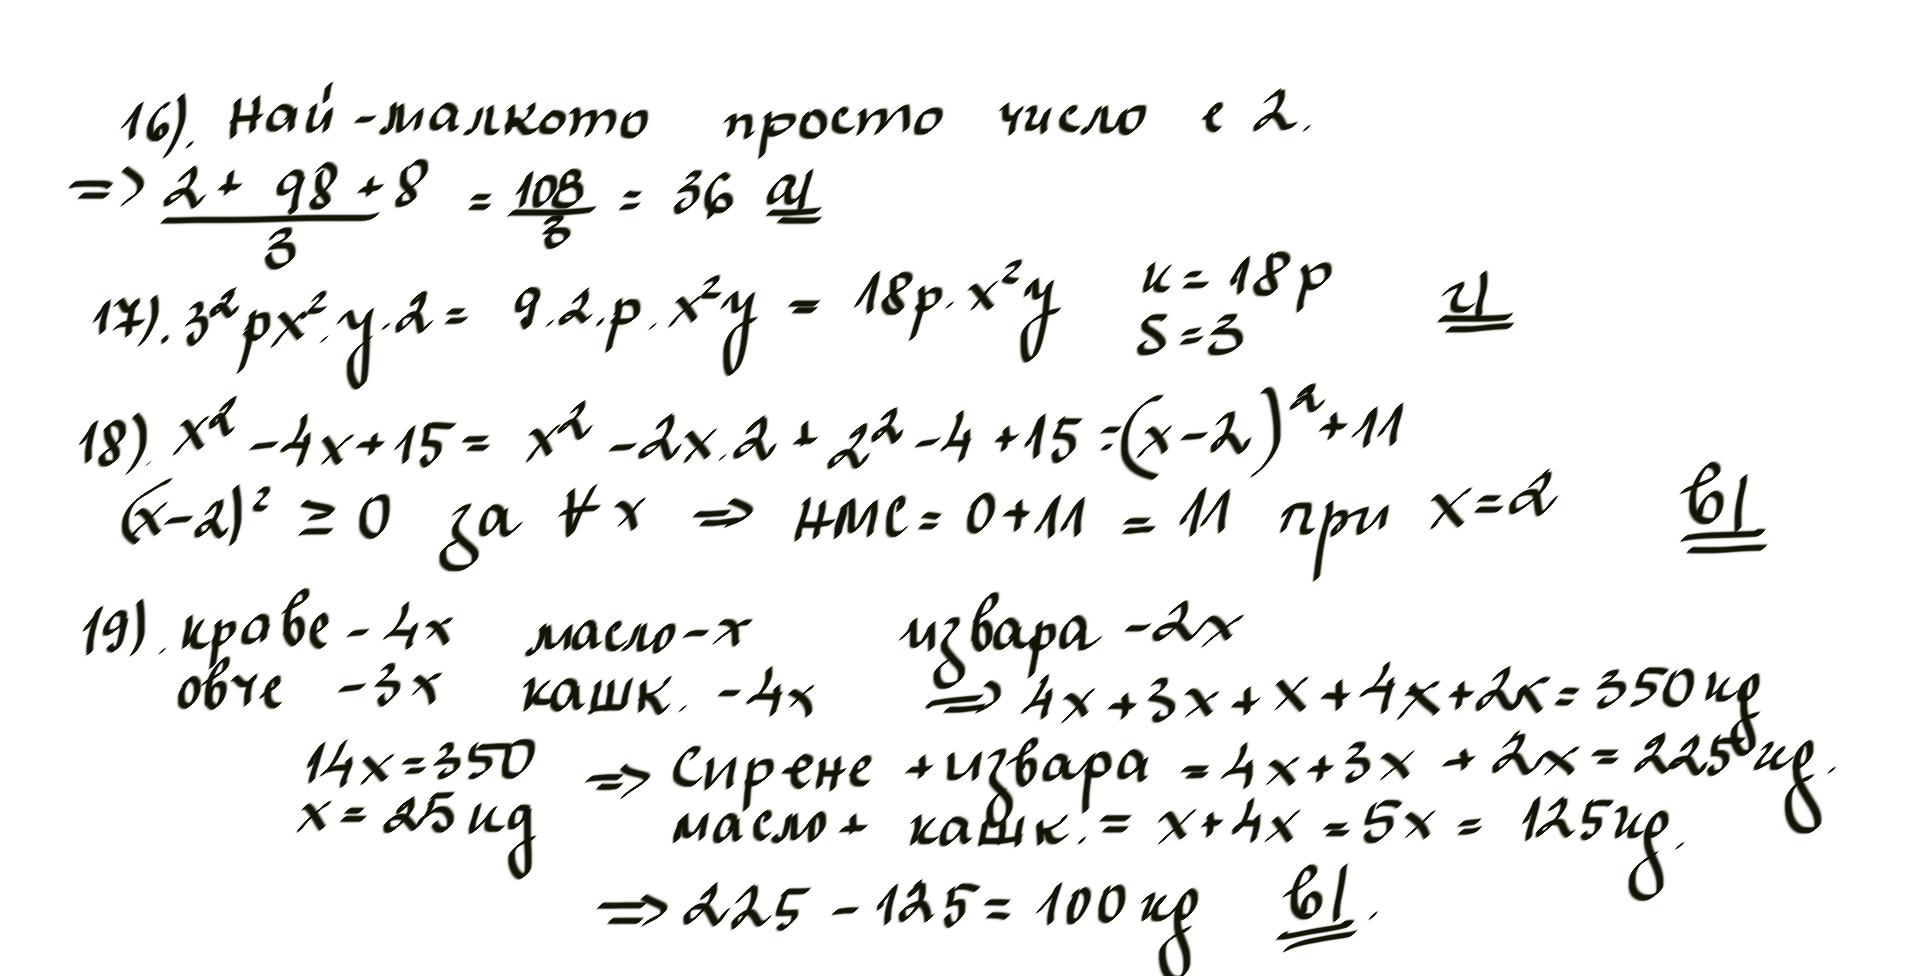 16). Най-малкото просто число е 2.
=> (2 + 98 + 8)/3 = 108/3 = 36 а)
17). 3²px².y.2 = 9.2.p.x²y = 18p.x²y к = 18p г)
S = 3
18). x² - 4x + 15 = x² - 2x.2 + 2² - 4 + 15 = (x-2)² + 11
(x-2)² ≥ 0 за ∀ x => НМС = 0 + 11 = 11 при x = 2 в)
19). краве - 4x масло - x извара - 2x
овче - 3x кашк. - 4x => 4x + 3x + x + 4x + 2x = 350 кg
14x = 350 => Сирене + извара = 4x + 3x + 2x = 225 кg.
x = 25 кg масло + кашк. = x + 4x = 5x = 125 кg.
=> 225 - 125 = 100 кg в).